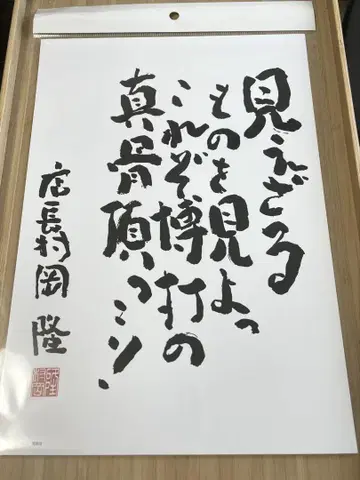 見えざる
ものを見よっ
これぞ博打の
真骨頂っミソ!
店長村岡隆